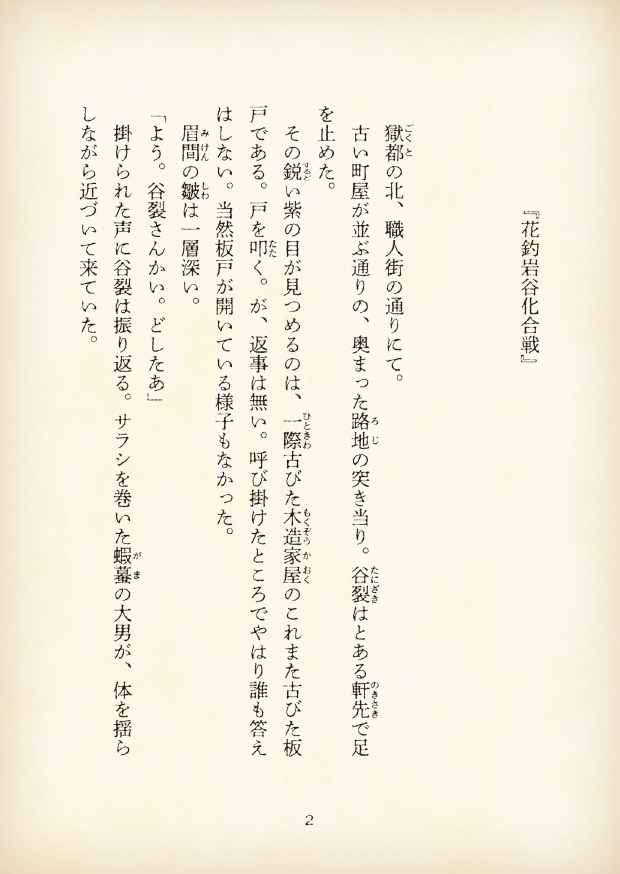 『花釣岩谷化合戦』
獄都の北、職人街の通りにて。
古い町屋が並ぶ通りの、奥まった路地の突き当り。谷裂はとある軒先で足
を止めた。
その鋭い紫の目が見つめるのは、一際古びた木造家屋のこれまた古びた板
戸である。戸を叩く。が、返事は無い。呼び掛けたところでやはり誰も答え
はしない。当然板戸が開いている様子もなかった。
眉間の皺は一層深い。
「よう。谷裂さんかい。どしたあ」
掛けられた声に谷裂は振り返る。サラシを巻いた蝦蟇の大男が、体を揺ら
しながら近づいて来ていた。
2